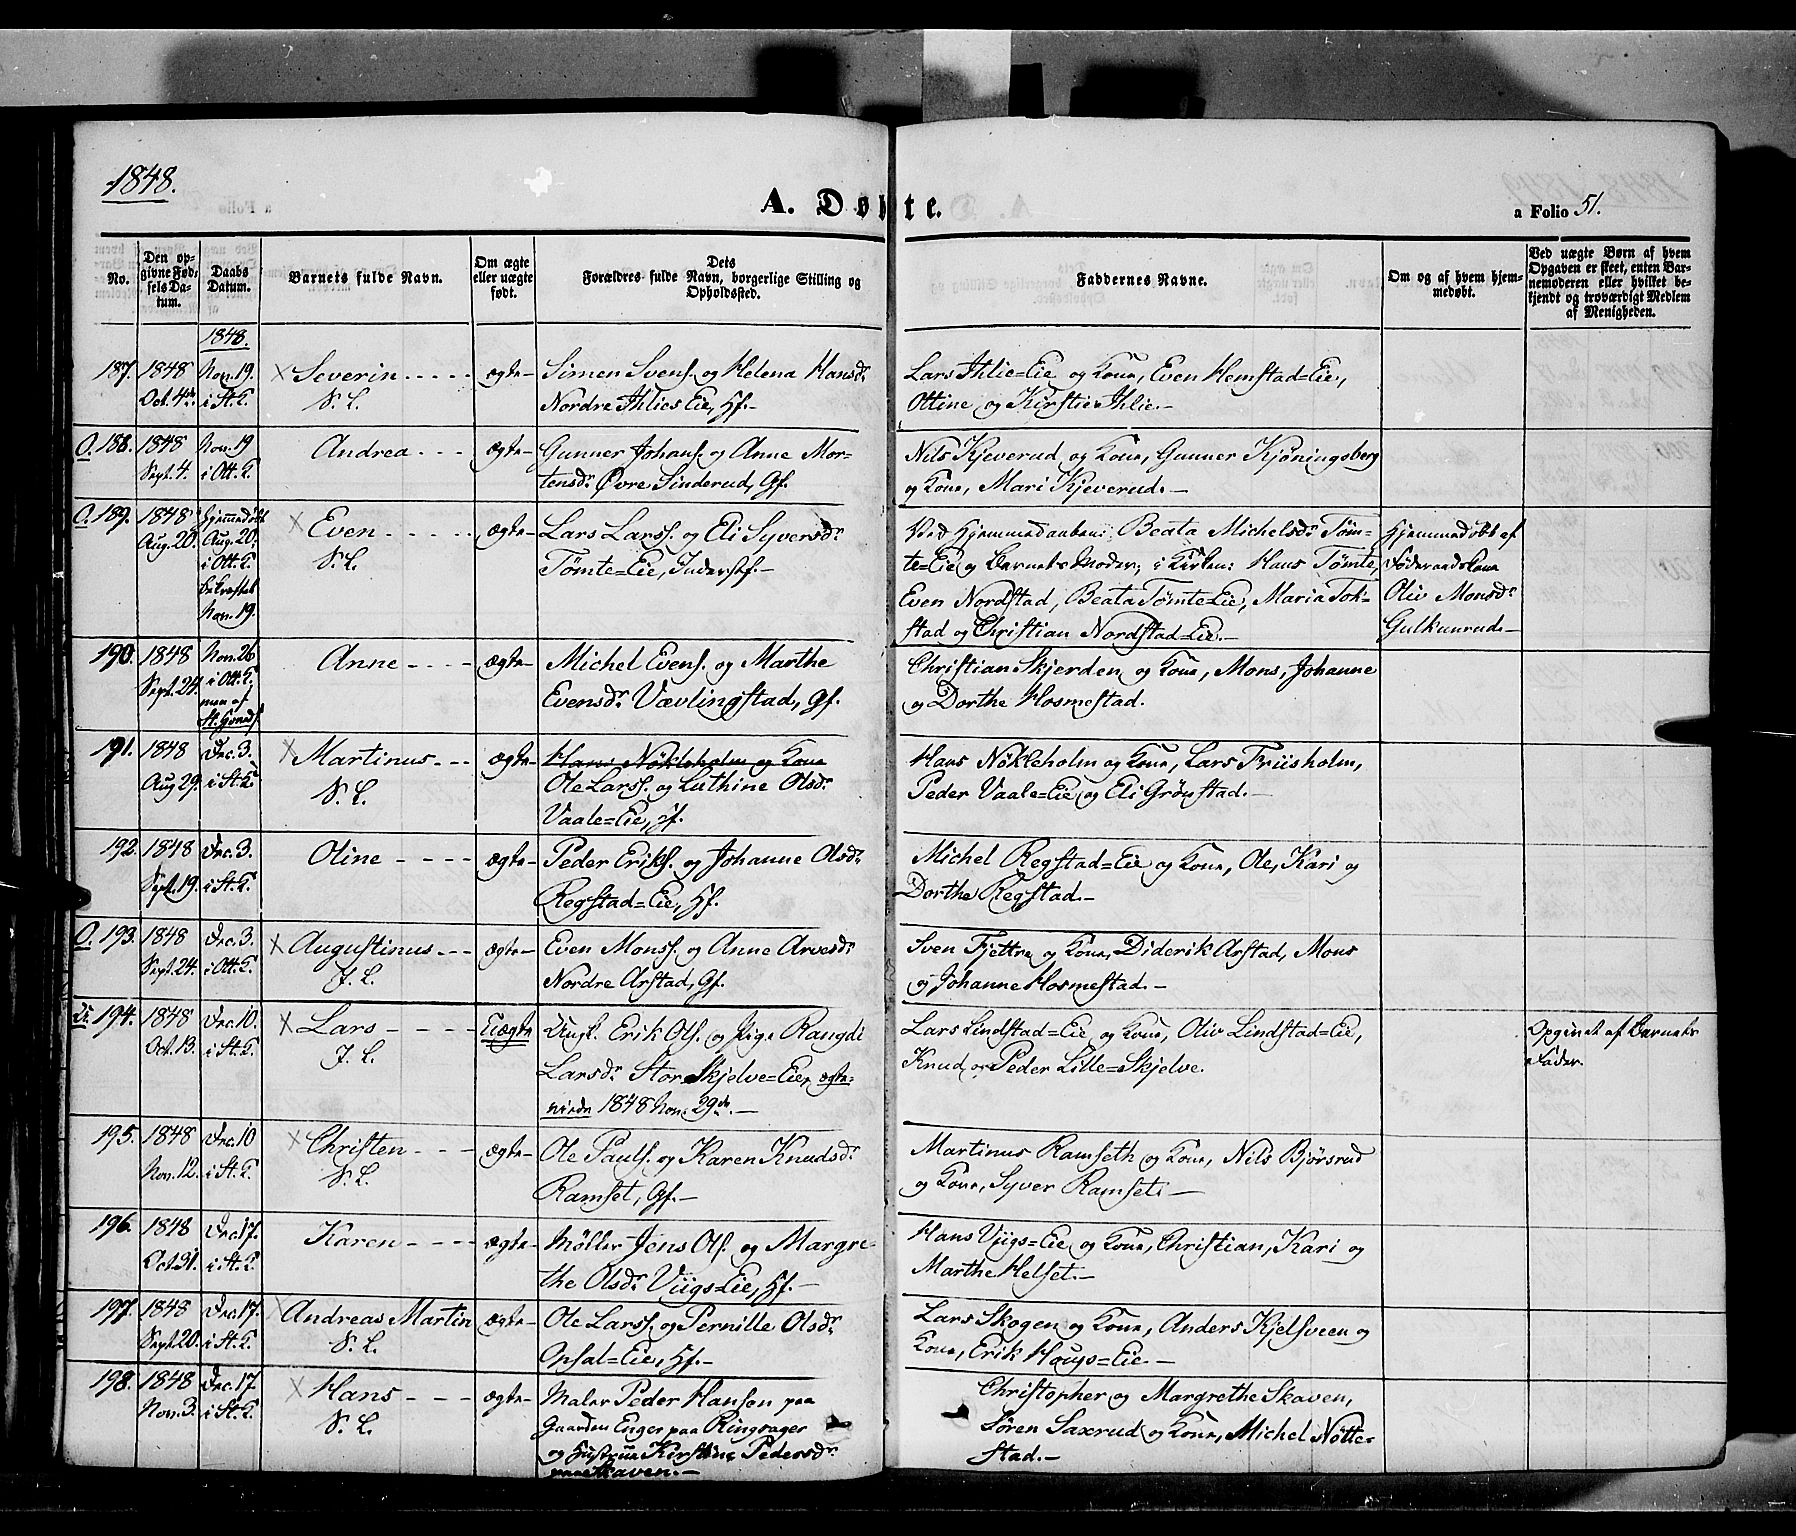 1848.
A. Døbte.
a Folio 51.
No.
Den opgivne Fødselsdatum.
Daabs Datum.
Barnets fulde Navn.
Om ægte eller uægte født.
Dets Forældres fulde Navn, borgerlige Stilling og Opholdssted.
Faddernes Navne.
Om og af hvem hjemmedøbt.
Ved uægte Børn af hvem Opgaven er skeet, enten Barnemoderen eller hvilket bekjendt og troværdigt Medlem af Menigheden.
1848.
187. 1848 Nov. 19. × Severin ægte Simen Svens. og Helena Hansdr. Lars Ihlie=Eie og Kone, Even Hemstad=Eie,
Oct. 4de i St. K. S. L. Nordre Ihlies Eie, Hf. Ottine og Kirstie Ihlie.
O. 188. 1848 Nov. 19 Andrea ægte Gunner Johans. og Anne Mor- Nils Kjeverud og Kone, Gunner Kjøningsberg
Sept. 4. i Ott. K. tensdr. Øvre Sinderud, Gf. og Kone, Mari Kjeverud.
O. 189. 1848 Hjemmedøbt × Even ægte Lars Larss. og Eli Syversdr. Ved Hjemmedaaben: Beata Michelsdr. Tøm- Hjemmedøbt af
Aug. 20. Aug. 20. S. L. Tømte=Eie, te=Eie og Barnets Moder; i Kirken: Hans Tømte, Føderaadskone
i Ott. K. Even Nordstad, Beata Tømte=Eie, Maria Tok- Oliv Monsdr.
bekræftet stad og Christian Nordstad=Eie.
Nov. 19.
190. 1848 Nov. 26 Anne ægte Michel Evens. og Marthe Christian Skjerden og Kone, Mons, Johanne
Sept. 24. i Ott. K. Evensdr. Vævlingstad, Gf. og Dorthe Hosmestad.
191. 1848 Dec. 3. × Martinus ægte Hans Nökleholm og Kone Hans Nökleholm og Kone, Lars Friisholm,
Aug. 29. i St. K. S. L. Ole Larss. og Luthine Olsdr. Peder Vaale=Eie og Eli Grönstad.
Vaale=Eie, Hf.
192. 1848 Dec. 3. Oline ægte Peder Eriks. og Johanne Olsdr. Michel Regstad=Eie og Kone, Ole, Kari og
Sept. 19. i St. K. Regstad=Eie, Hf. Dorthe Regstad.
O. 193. 1848 Dec. 3. × Augustinus ægte Even Monss. og Anne Arvesdr. Sven Fjettre og Kone, Diderik Arstad, Mons
Sept. 24. i Ott. K. J. L. Nordre Arstad, Gf. og Johanne Hosmestad.
U. 194. 1848 Dec. 10. × Lars Uægte Ungk. Erik Ols. og Pige Rangdi Lars Lindstad=Eie og Kone, Oliv Lindstad=Eie, Opgivet af Barnets
Oct. 13. i St. K. J. L. Larsdr. Store Skjelve=Eie, ægte- Knud og Peder Lille=Skjelve. Fader.
viede 1848 Nov. 29de.
195. 1848 Dec. 10 × Christen ægte Ole Pauls. og Karen Knudsdr. Martinus Ramseth og Kone, Nils Bjørsrud
Nov. 12. i St. K. S. L. Ramset, Gf. og Kone, Syver Ramset.
196. 1848 Dec. 17. Karen ægte Møller Jens Ols. og Margre- Hans Viigs=Eie og Kone, Christian, Kari og
Oct. 31. i St. K. the Olsdr. Viigs=Eie, Hf. Marthe Helset.
197. 1848 Dec. 17. × Andreas Martin ægte Ole Larss. og Pernille Olsdr. Lars Skogen og Kone, Anders Kjelsveen og
Sept. 20. i St. K. S. L. Opsal=Eie, Hf. Kone, Erik Hougs=Eie.
198. 1848 Dec. 17. × Hans ægte Maler Peder Hansen paa Christopher og Margrethe Skaven,
Nov. 3. i St. K. S. L. Gaarden Enger paa Ringsager Søren Saxrud og Kone, Michel Nötte-
og Hustrue Kirstine Pedersdr. stad.
Skaven.